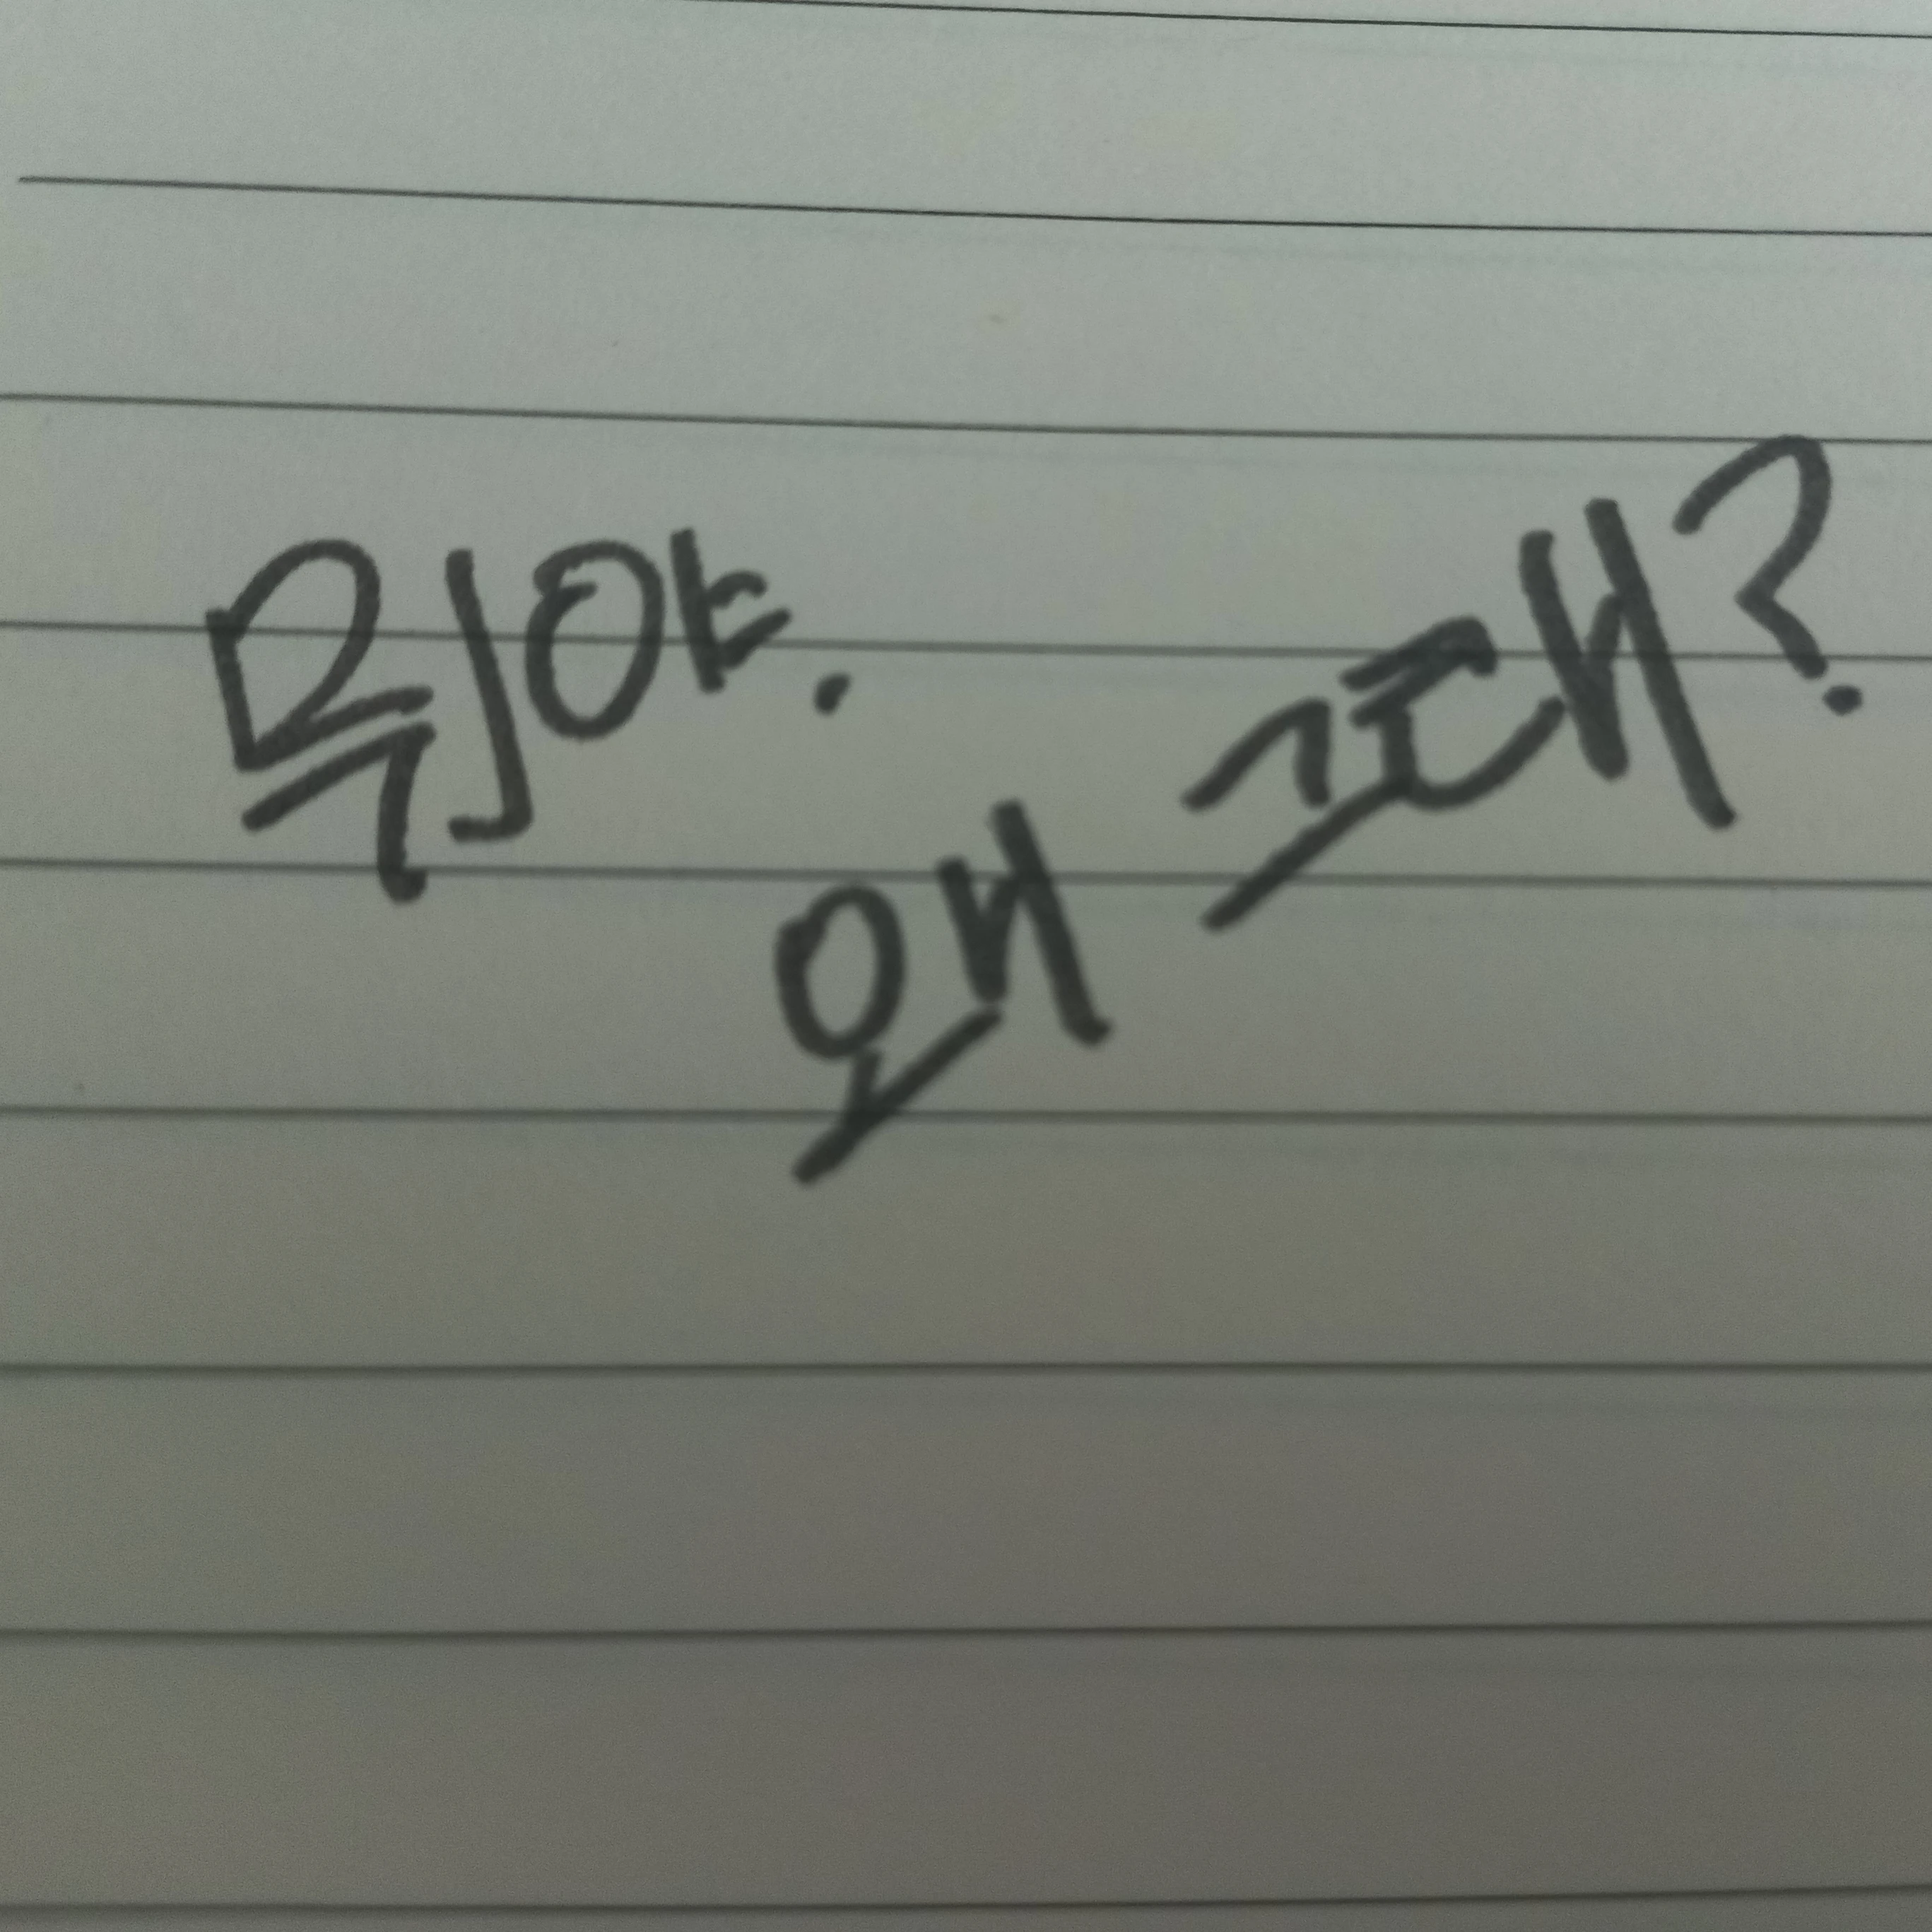 뭐야.
왜 그래?